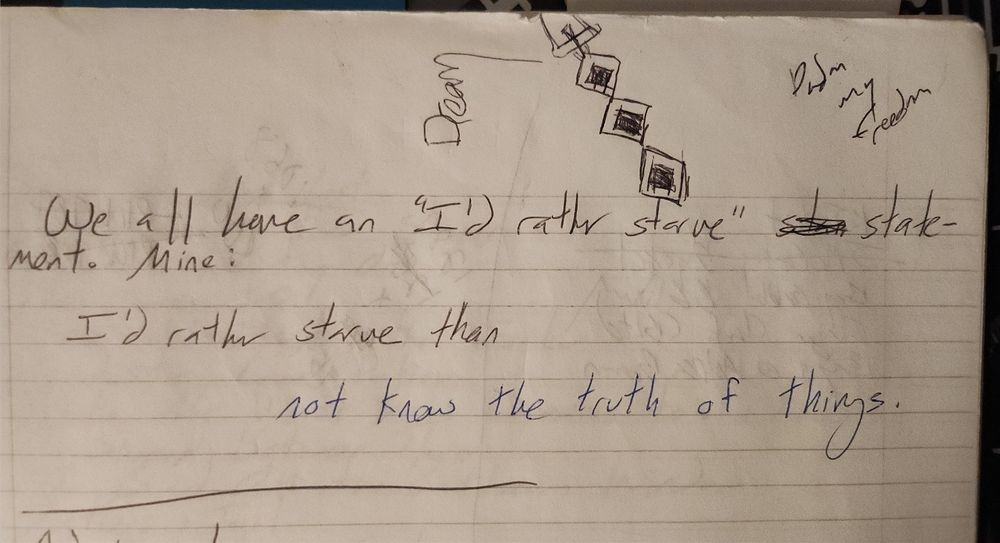 Dream
my
freedm
We all have an "I'd rather starve" state-
ment. Mine:
I'd rather starve than
not know the truth of things.